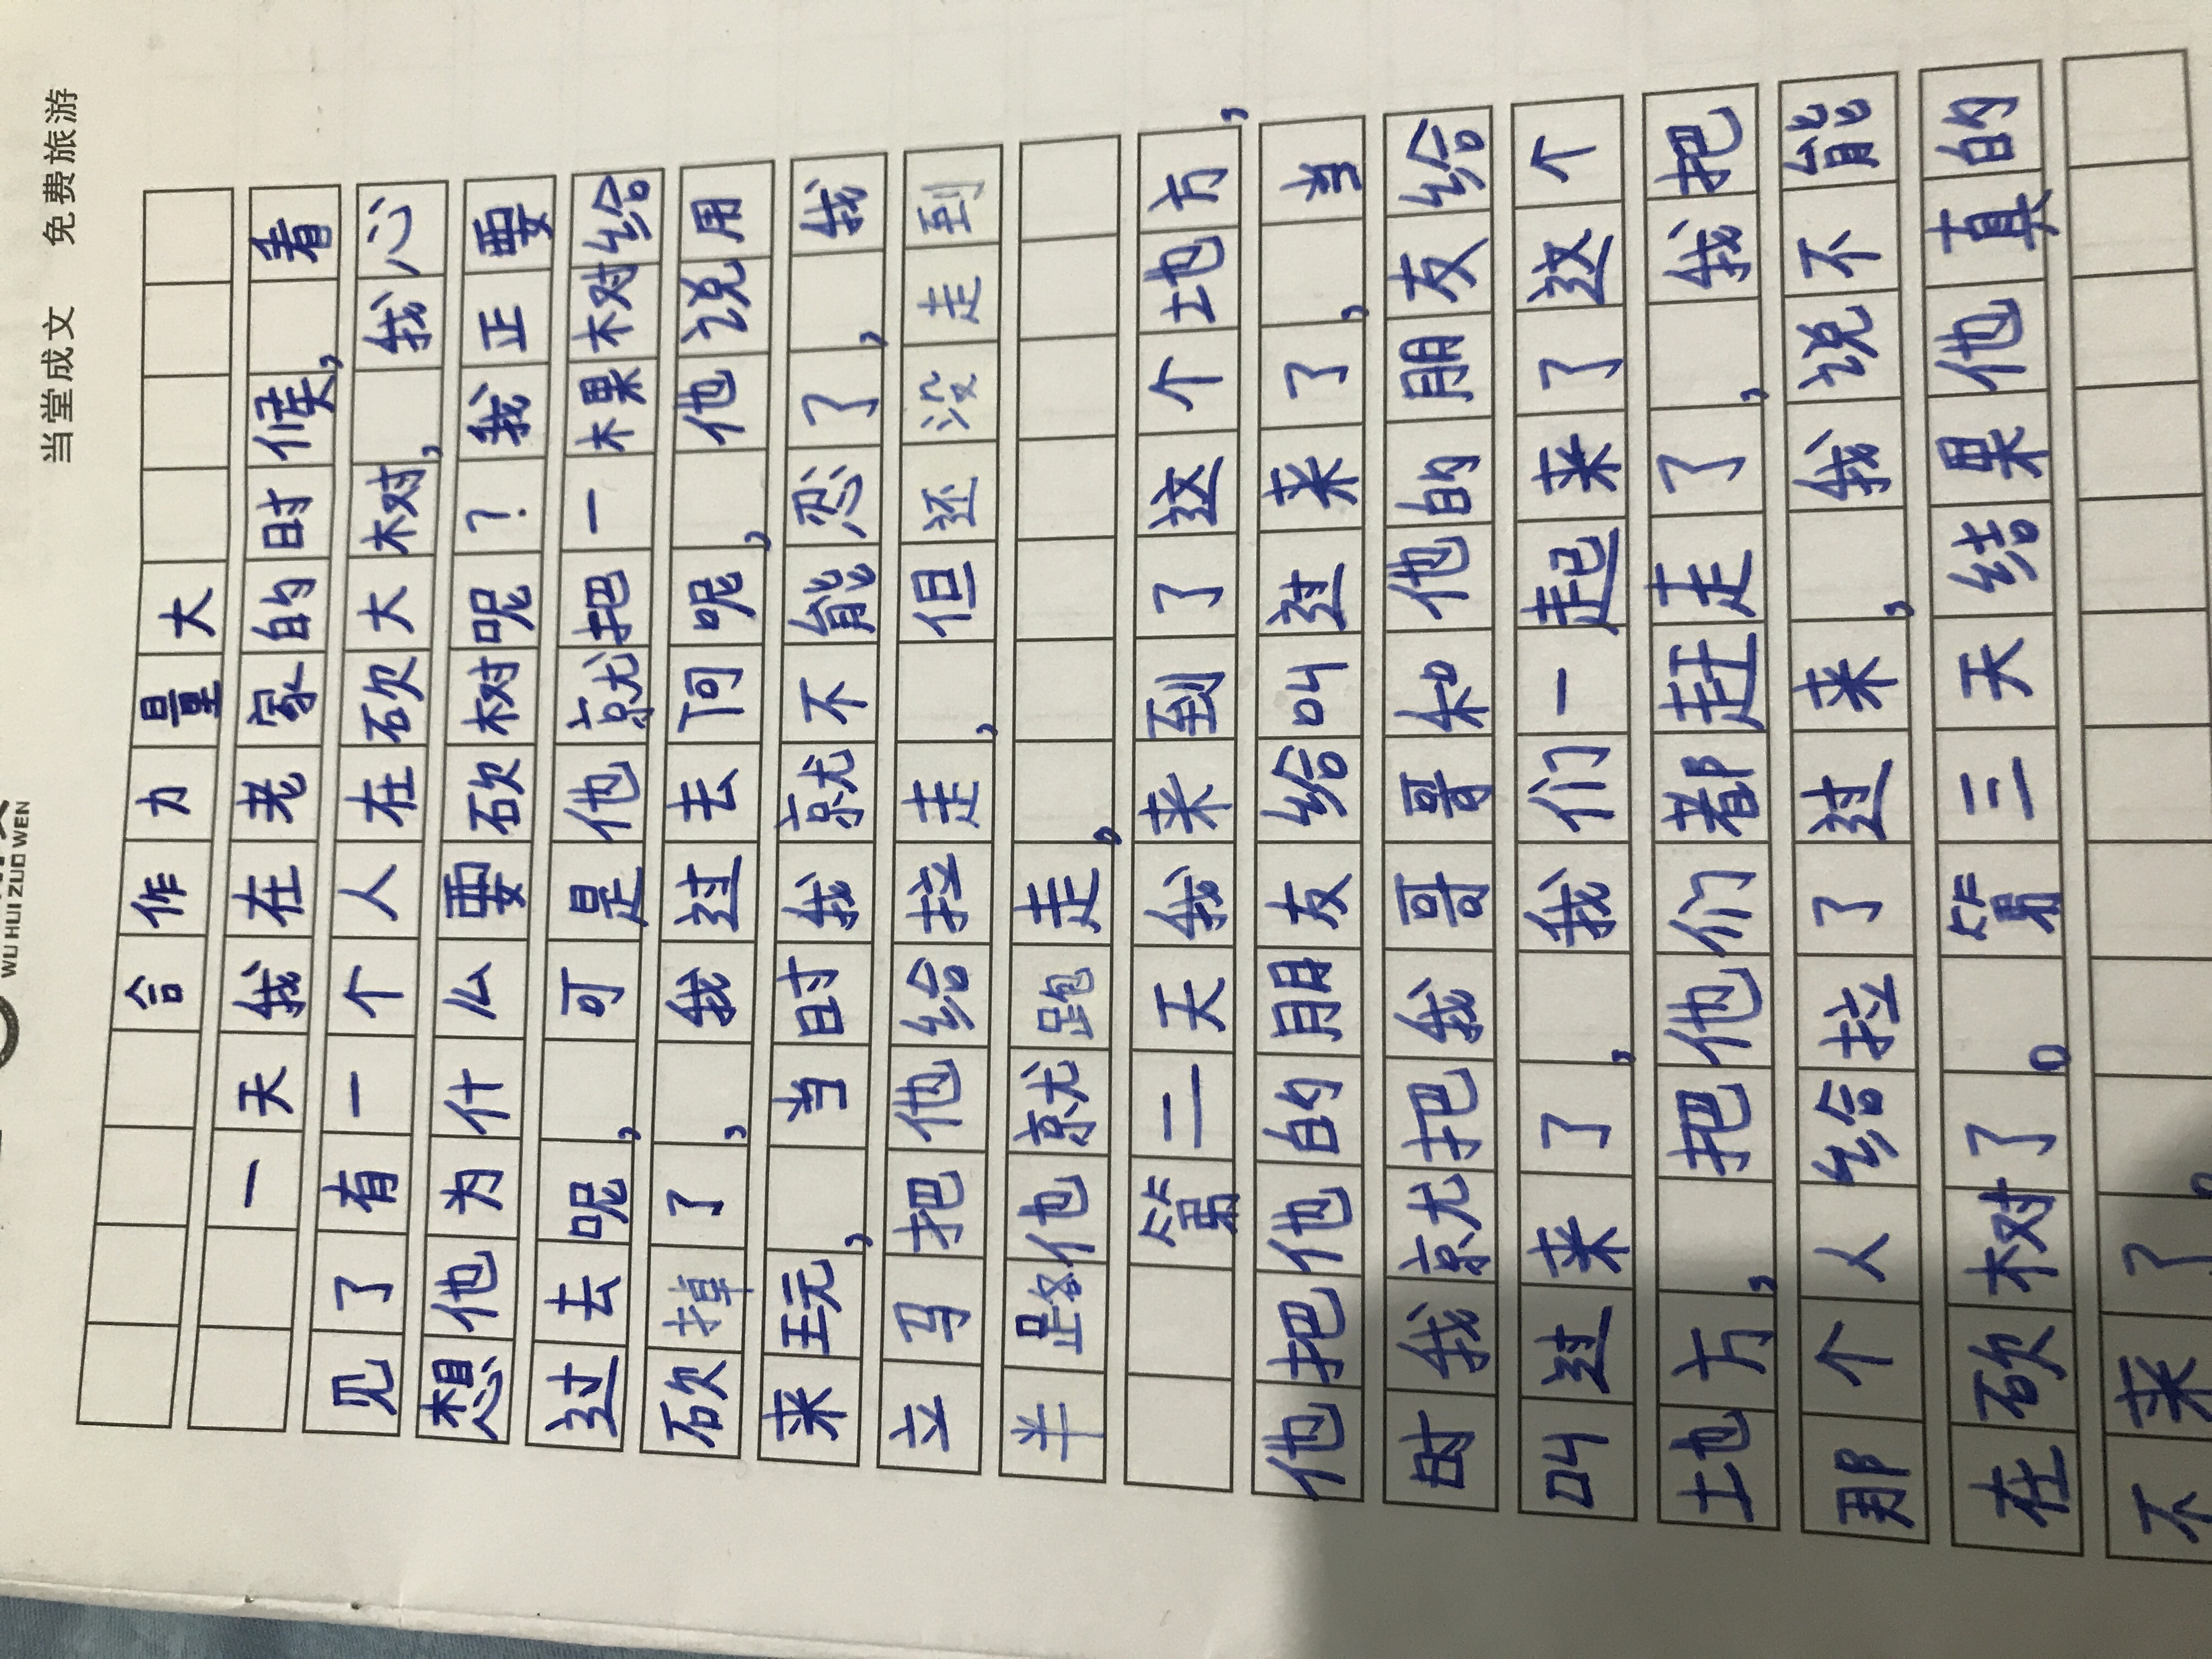 当堂成文 免费旅游
WU HUI ZUO WEN
合作力量大
一天我在老家的时候，看
见了有一个人在砍大树，我心
想他为什么要砍树呢？我正要
过去呢，可是他就把一果树给
砍掉了，我过去问呢，他说用
来玩，当时我就不能忍了，我
立马把他给拉走，但还没走到
半路他就跑走，
第二天我来到了这个地方，
他把他的朋友给叫过来了，当
时我就把我哥哥和他的朋友给
叫过来了，我们一起来了这个
地方，把他们都赶走了，我把
那个人给拉了过来，我说不能
在砍树了。第三天结果他真的
不来了。